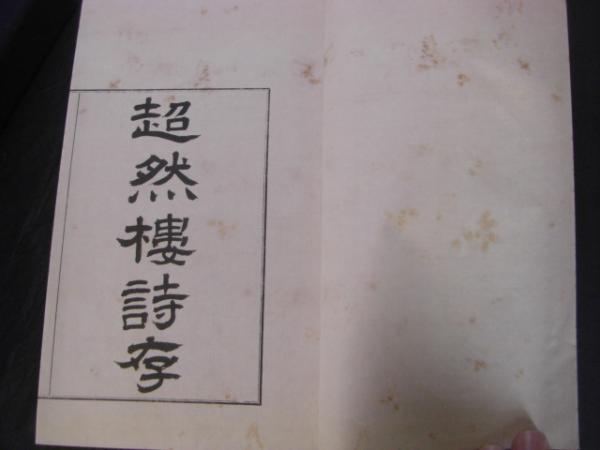 超然樓詩存